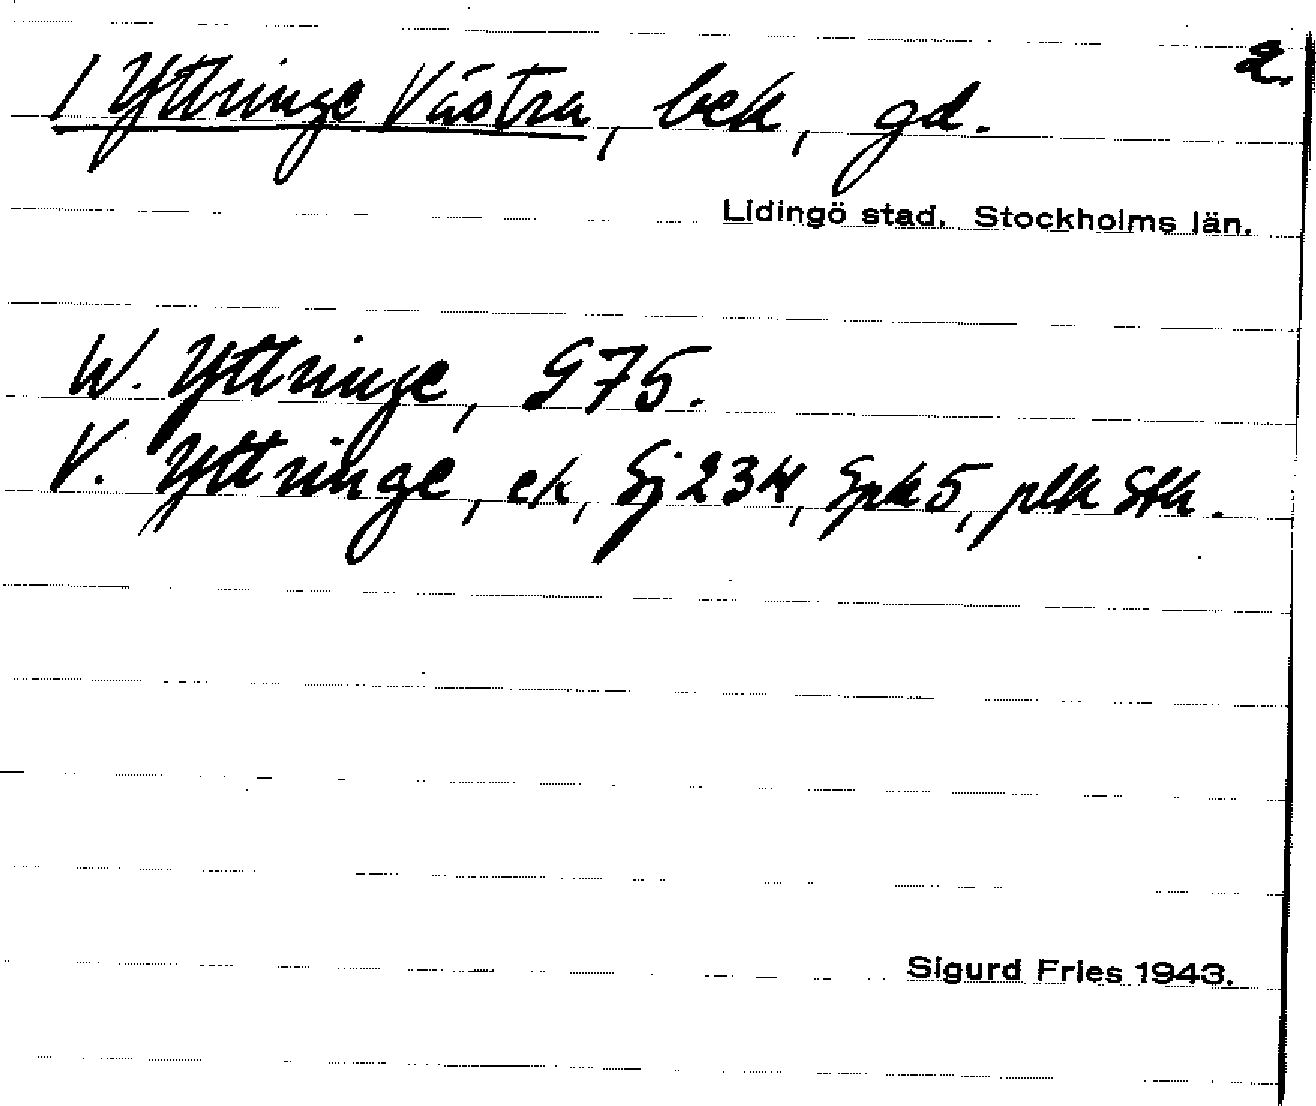 2.
1 Yttringe Västra, bek, gd.
Lidingö stad. Stockholms län.
W. Yttringe, G75.
V. Yttringe, ek, Sj 234, Spk 5, plk Sthl.
Sigurd Fries 1943.